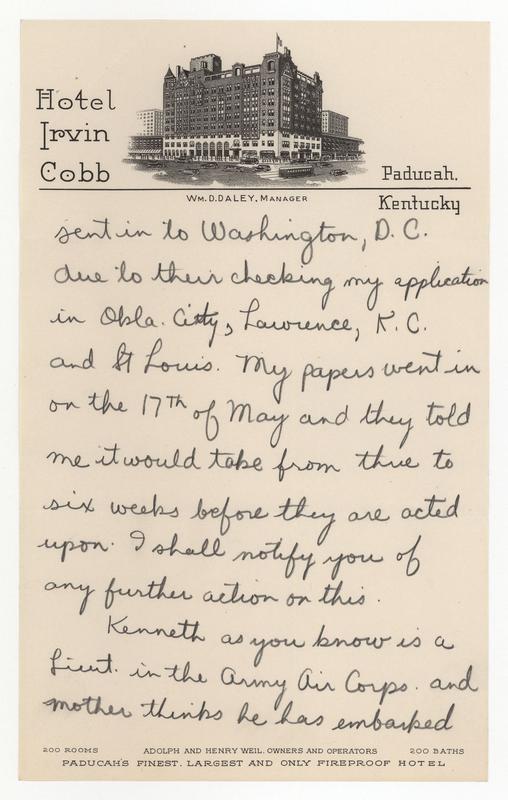 Hotel
Irvin
Cobb
Paducah,
Kentucky
WM. D. DALEY, MANAGER
sent in to Washington, D.C.
due to their checking my application
in Okla. City, Lawrence, K.C.
and St Louis. My papers went in
on the 17th of May and they told
me it would take from three to
six weeks before they are acted
upon. I shall notify you of
any further action on this.
Kenneth as you know is a
Lieut. in the Army Air Corps. and
mother thinks he has embarked
200 ROOMS ADOLPH AND HENRY WEIL, OWNERS AND OPERATORS 200 BATHS
PADUCAH'S FINEST, LARGEST AND ONLY FIREPROOF HOTEL